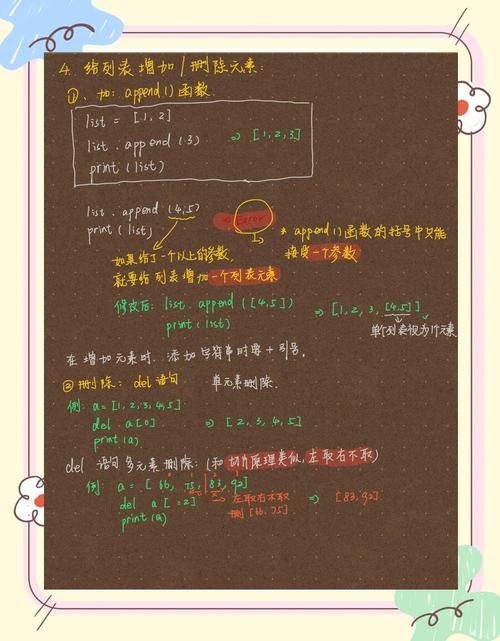 4. 给列表增加/删除元素:
①、加: append()函数.
list = [1, 2]
list.append(3) ⇒ [1, 2, 3]
print(list)
list.append(4,5) ⇒ Error
print(list)
* append()函数的括号中只能接受一个参数
如果给了一个以上的参数,
就要给列表增加一个列表元素
修改后: list.append([4,5]) ⇒ [1, 2, 3, [4,5]]
print(list)
单个列表视为1个元素
在增加元素时. 添加字符串时要+引号.
②删除: del语句 单元素删除.
例: a=[1, 2, 3, 4, 5]
del a[0] ⇒ [2, 3, 4, 5]
print(a)
del 语句多元素删除: (和切片原理类似, 左取右不取)
例: a = [66, 75, 83, 92]
0 1 2
del a[:2] → 左取右不取 ⇒ [83, 92]
print(a) 删[66, 75]